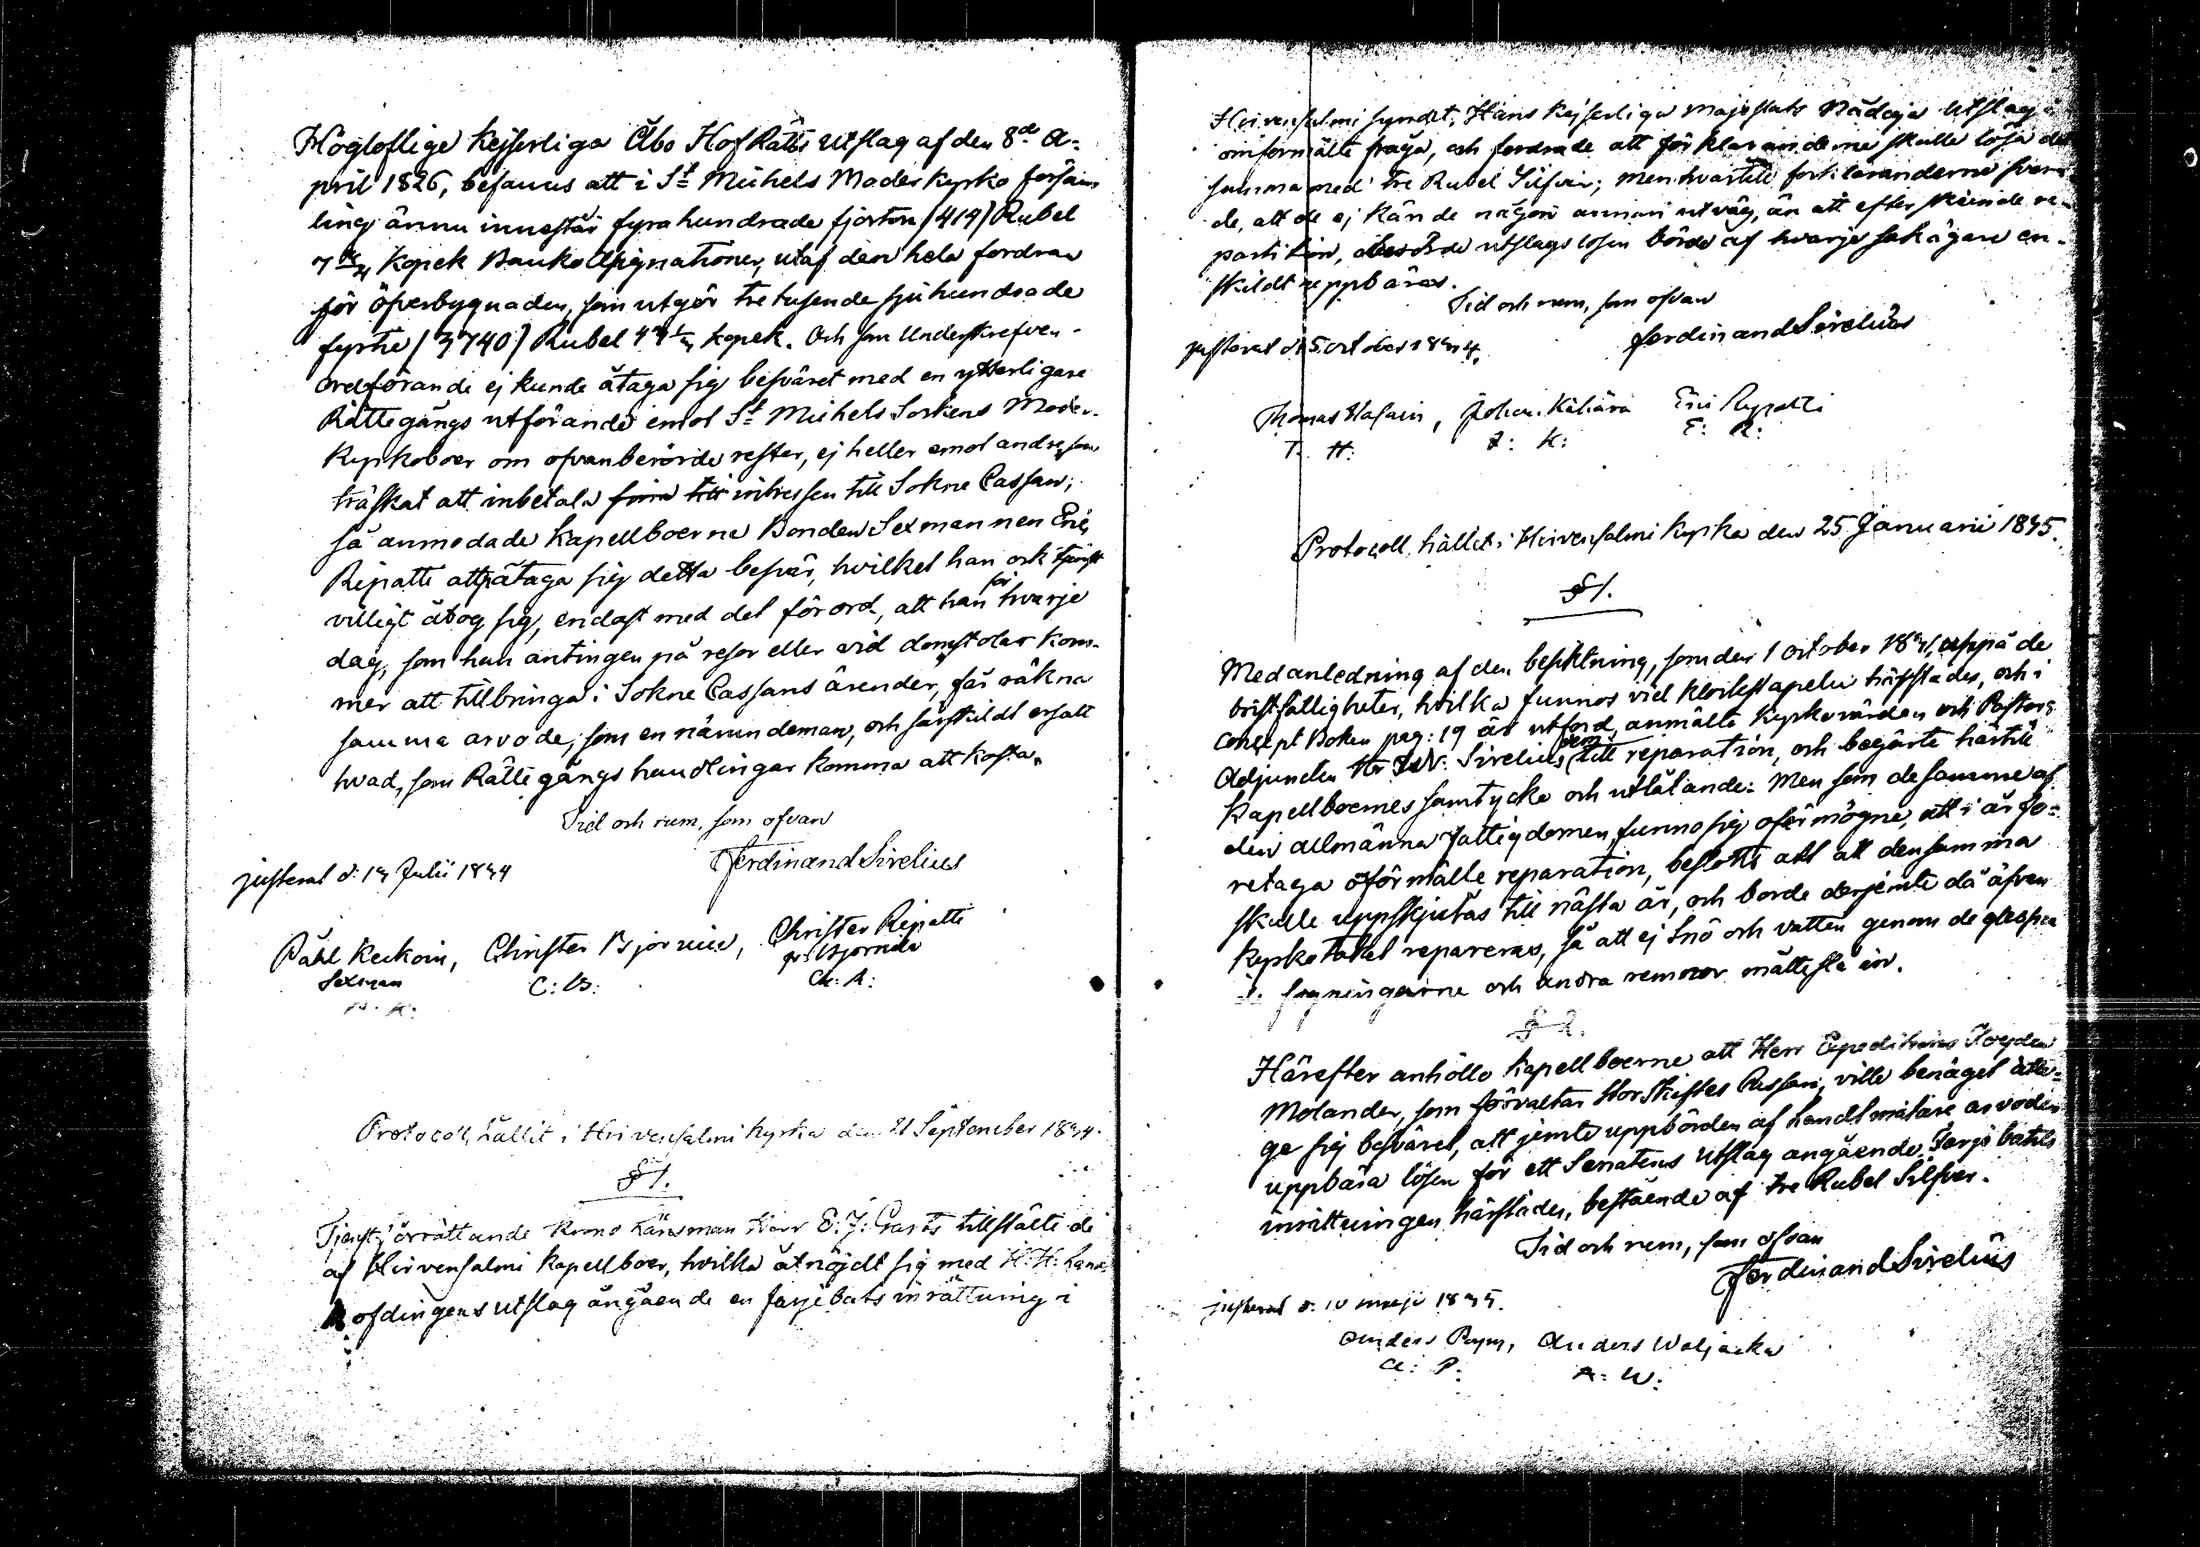 Högloflige Kejserliga Åbo Hof Rätts utslag af den 8de A-
pril 1826, befanns att i St Michels Moderkyrko försam
ling ännu innestår fyrahundrade fjorton (414) Rubel
7 Kopek Banko Assignationer, utaf den hela fordran
för öfverbygnaden, som utgör tretusende sjuhundrade
fyrtio (3740) Rubel kopek. Och som Underskrefven
ordförande ej kunde åtaga sig besväret med en ytterligare
Rättegångs utförande emot St Michels Sockens Moder-
kyrkoboer om ofvanberörde rester, ej heller emot andre, som
träskat att inbetala intressen till Sokne Cassan;
så anmodade Kapellboerne Bonden Sexmannen Eric
Ripatti att påtaga sig detta besvär, hvilket han ock
villigt åtog sig, endast med det förord, att han för hvarje
dag, som han antingen på resor eller vid domstolar kom-
mer att tillbringa i Sokne Cassans ärender, får räkna
samma arvode, som en nämndeman, och särskildt ersatt
hvad, som Rättegångs handlingar komma att kosta.
Tid och rum, som ofvan
Ferdinand Sirelius
justerat d. 14 Julii 1844
Påhl Keckoin, Christer Bjorniin, Christer Ripatti
Sexman C: B: Ch: R:
Protocoll, hållit i Hirvensalmi Kyrka den 21 September 1844.
§ 1.
Tjenstförrättande Krono Länsman Herr E. J. tillstälte de
af Hirvensalmi Kapellboer, hvilka åtnöjdt sig med H. H. Lands
höfdingens utslag angående en färjebåts inrättning i
Hirvensalmi sundet, Hans Kejserliga Majestäts Nådiga Utslag i
omförmälte fråga, och fordrade att förklaranderne skulle lösa det
samma med tre Rubel Silfver; men hvartill förklaranderne svara
de, att de ej kände någon annan utväg, än att efter skeende re-
partition, berörde utslags lösen borde af hvarje sakägare en-
skildt uppbäras.
Tid och rum, som ofvan
Ferdinand Sirelius
justerat d. 5 october 1844.
Thomas Hasuin, Johan Kähärä Eric Rypatti
T. H: J: K: E: R:
Protocoll, hållit i Hirvensalmi Kyrka den 25 Januarii 1845.
§ 1.
Med anledning af den besiktning, som den 1 october 1841, uppå de
bristfälligheter, hvilka funnos vid klockstapeln härstädes, och i
Concept Boken pag: 19 är utförd, anmälte Kyrkovärden och Pastors
Adjuncten Hr Sirelius dem till reparation, och begärte härtill
Kapellboernes samtycke och utlåtande: Men som desamme af
den allmänna fattigdomen, funno sig oförmögne, att i år fö-
retaga oförmälte reparation, beslöts att att densamma
skulle uppskjutas till nästa år, och borde derjemte då äfven
Kyrkotaket repareras, så att ej Snö och vatten genom de glespa
fogningarne och andra remnor måtte slå in.
§ 2.
Härefter anhöllo Kapellboerne att Herr Expeditions Fogden
Molander, som förvaltar Storskiftes Cassan, ville benäget åta-
ge sig besväret, att jemte uppbörden af Landtmätare arvoden
uppbära lösen för ett Senatens utslag angående Färjebåts
inrättningen härstädes, bestående af tre Rubel Silfver.
Tid och rum, som ofvan
Ferdinand Sirelius
justerat d: 10 maji 1845.
Anders Papu, Anders Waljacka
A: P: A: W: